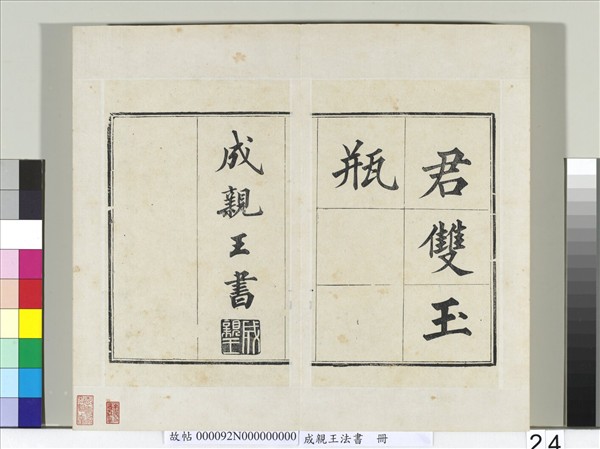 君雙玉
瓶
成親王書
成親王
故帖 000092N000000000 成親王法書 冊
24